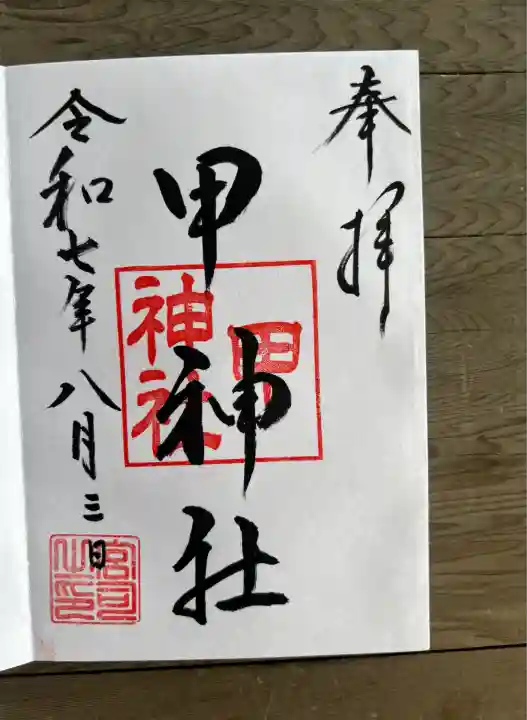 奉拝
甲神社
甲
神社
令和七年八月三日
宮司之印